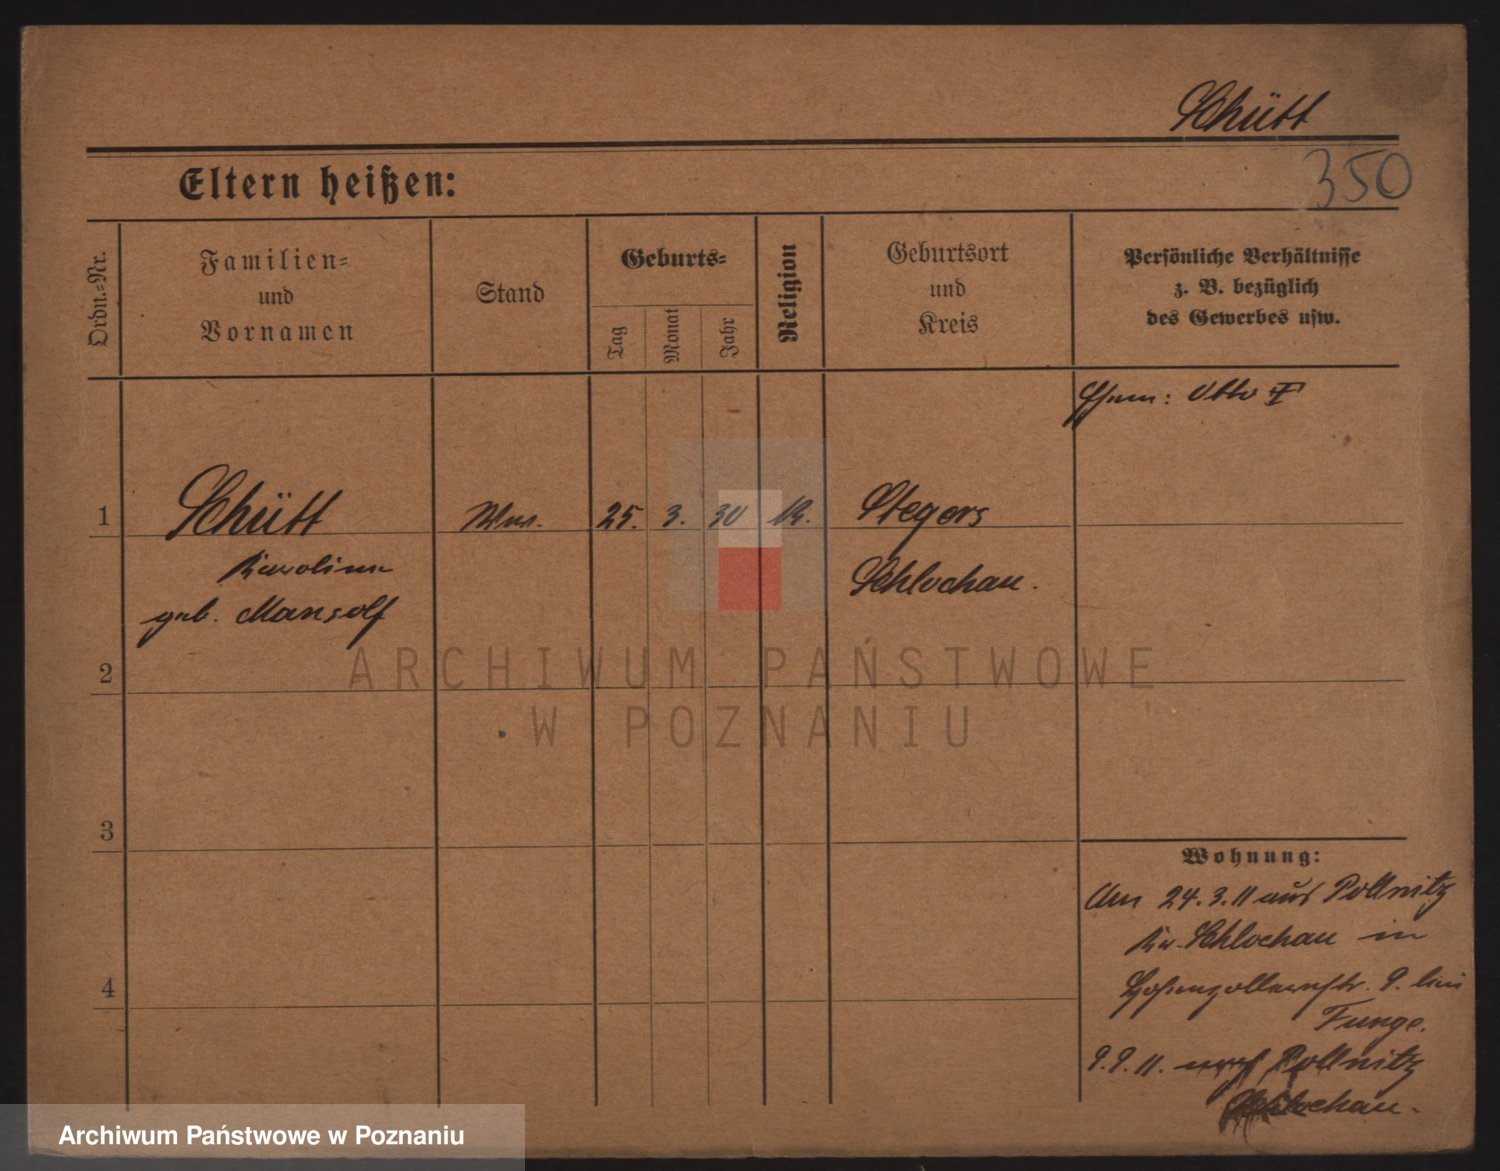 Schütt
350
Eltern heißen:
Ordn.=Nr.
Familien=
und
Vornamen
Stand
Geburts=
Tag
Monat
Jahr
Religion
Geburtsort
und
Kreis
Persönliche Verhältnisse
z. B. bezüglich
des Gewerbes usw.
Otto
1 Schütt 25. 3. 30 Stegers
Karoline Schlochau.
geb. Mansolf
2
ARCHIWUM PAŃSTWOWE
W POZNANIU
3
Wohnung:
Am 24.3.11 aus Pollnitz
Kr. Schlochau in
4
Hohenzollernstr. 9. bei
Funge.
9.9.11. nach Pollnitz
Schlochau.
Archiwum Państwowe w Poznaniu